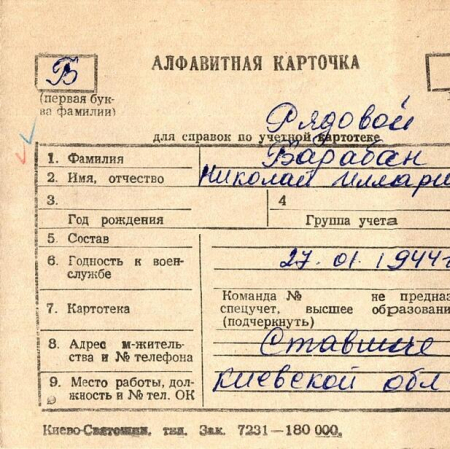 Б
АЛФАВИТНАЯ КАРТОЧКА
(первая бук-
ва фамилии)
Рядовой
для справок по учетной картотеке
1. Фамилия Барабан
2. Имя, отчество Николай Иллари
3.
Год рождения
4
Группа учета
5. Состав
6. Годность к воен-
службе
27.01.1944г
7. Картотека
Команда № не предназ
спецучет, высшее образовани
(подчеркнуть)
8. Адрес м-житель-
ства и № телефона
Ставище
9. Место работы, дол-
жность и № тел. ОК
Киевской обл
Киево-Святошин. тип. Зак. 7231—180 000.